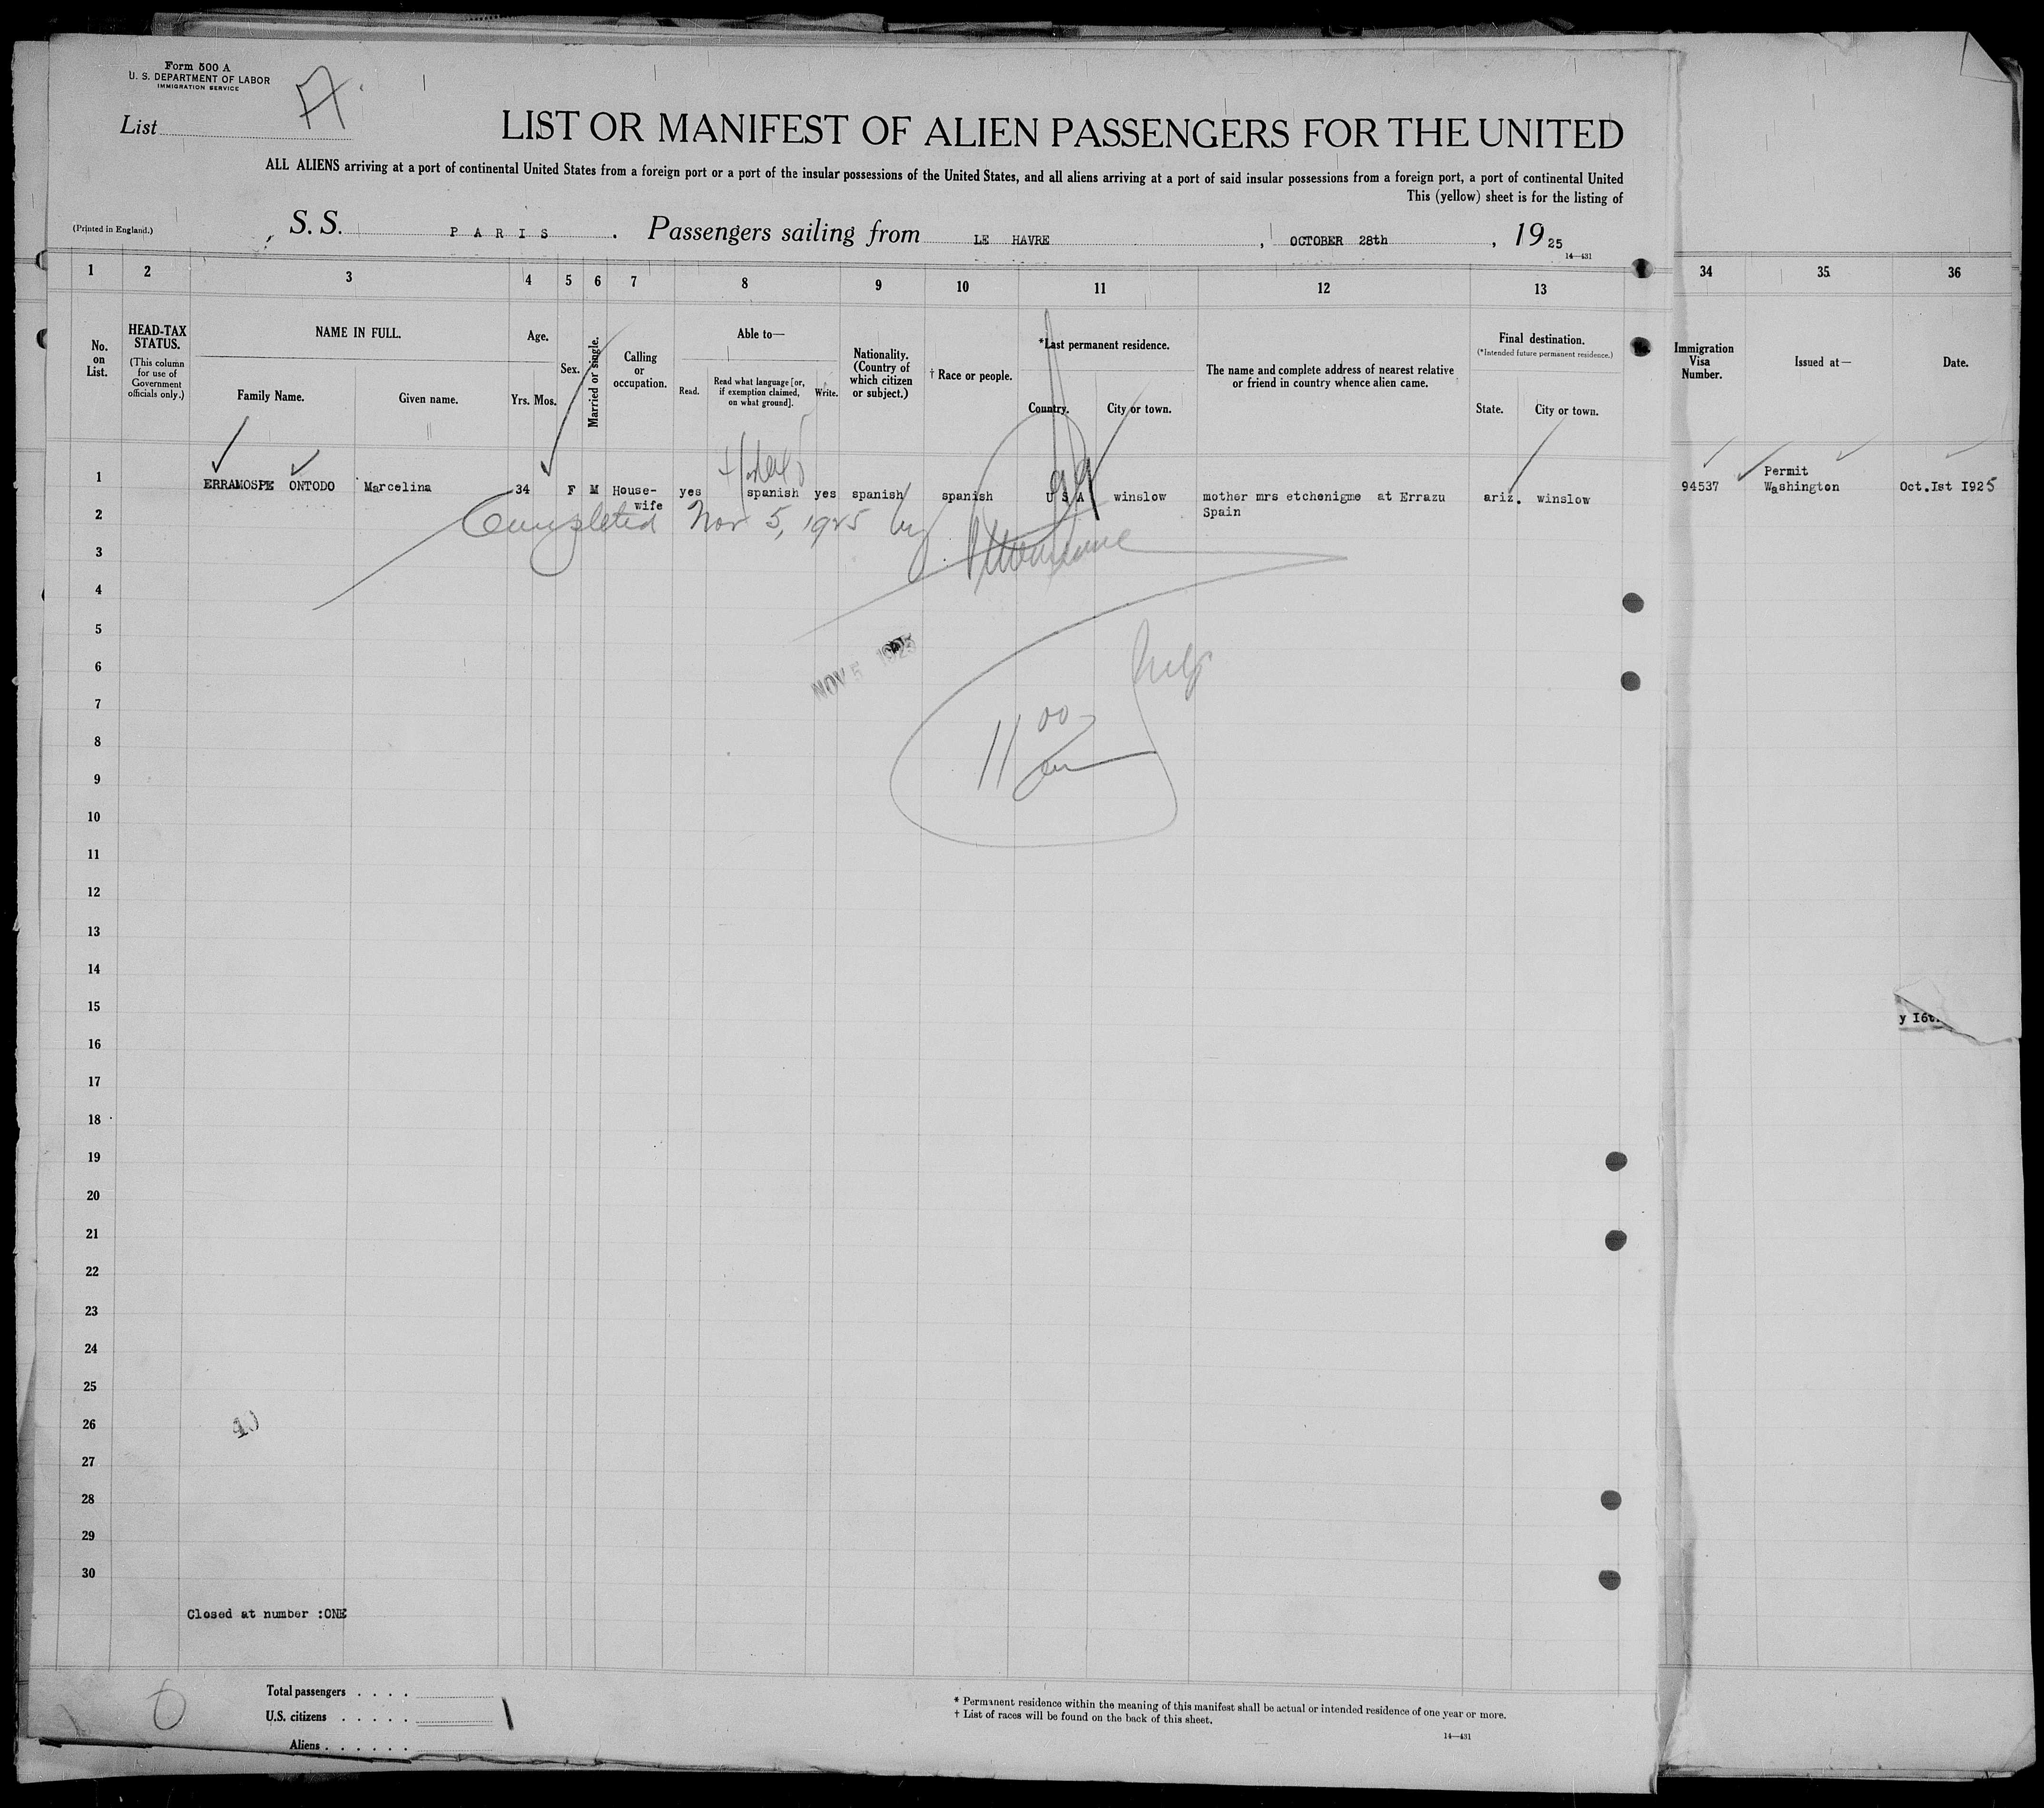 Form 500 A
U. S. DEPARTMENT OF LABOR
IMMIGRATION SERVICE
List
LIST OR MANIFEST OF ALIEN PASSENGERS FOR THE UNITED
ALL ALIENS arriving at a port of continental United States from a foreign port or a port of the insular possessions of the United States, and all aliens arriving at a port of said insular possessions from a foreign port, a port of continental United
This (yellow) sheet is for the listing of
(Printed in England.)
S. S. PARIS. Passengers sailing from LE HAVRE, OCTOBER 28th, 1925
14—431
1 2 3 4 5 6 7 8 9 10 11 12 13 34 35 36
No. on List.
HEAD-TAX STATUS.
(This column for use of Government officials only.)
NAME IN FULL.
Family Name.
Given name.
Age.
Yrs. Mos.
Sex.
Married or single.
Calling or occupation.
Able to—
Read.
Read what language [or, if exemption claimed, on what ground].
Write.
Nationality. (Country of which citizen or subject.)
† Race or people.
*Last permanent residence.
Country.
City or town.
The name and complete address of nearest relative or friend in country whence alien came.
Final destination.
(*Intended future permanent residence.)
State.
City or town.
Immigration Visa Number.
Issued at—
Date.
1 ERRAMOSPE ONTODO Marcelina 34 F M House-wife yes spanish yes spanish spanish U S A winslow mother mrs etchenigme at Errazu Spain ariz. winslow 94537 Permit Washington Oct.Ist I925
2 Completed Nov 5, 1925 by
3
4
5
NOV 5 1925
6
7
11 00
8
9
10
11
12
13
14
15
y I6t
16
17
18
19
20
21
22
23
24
25
26
27
28
29
30
Closed at number :ONE
Total passengers . . . .
U.S. citizens . . . . .
Aliens . . . . . .
* Permanent residence within the meaning of this manifest shall be actual or intended residence of one year or more.
† List of races will be found on the back of this sheet.
14—431